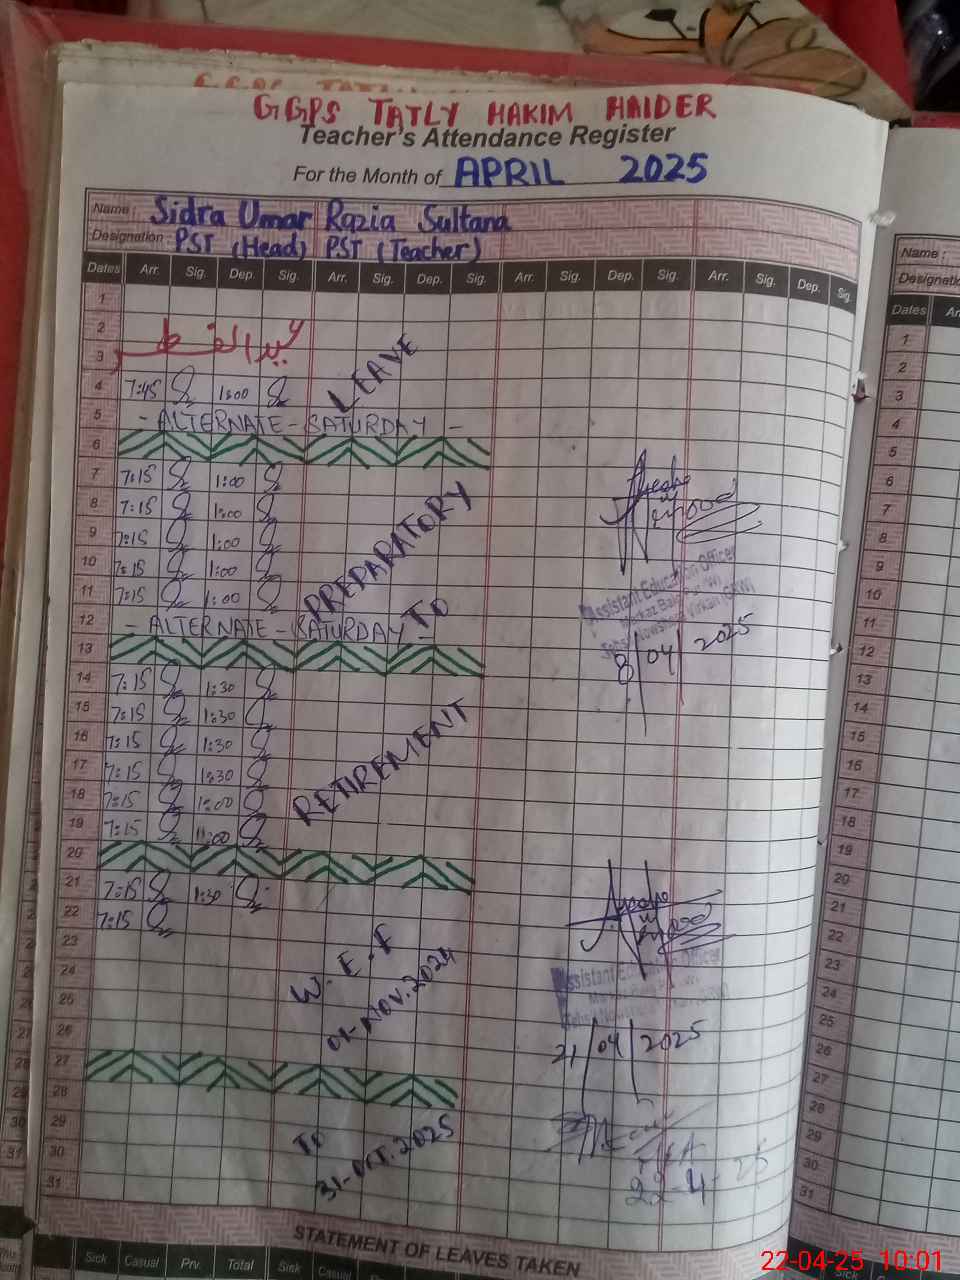 GGPS TATLY HAKIM HAIDER
Teacher's Attendance Register
For the Month of APRIL 2025
Name: Sidra Umar Razia Sultana
Designation: PST (Head) PST (Teacher)
Dates Arr. Sig. Dep. Sig. Arr. Sig. Dep. Sig. Arr. Sig. Dep. Sig. Arr. Sig. Dep. Sig.
1
2
عید الفطر
3
4 7:45 1:00
LEAVE
5 - ALTERNATE - SATURDAY -
6
7 7:15 1:00
8 7:15 1:00
9 7:15 1:00
10 7:15 1:00
11 7:15 1:00
PREPARATORY
TO
12 - ALTERNATE - SATURDAY -
13
14 7:15 1:30
15 7:15 1:30
16 7:15 1:30
17 7:15 1:30
18 7:15 1:00
19 7:15 11:00
RETIREMENT
20
21 7:15 1:30
22 7:15
23
24
W.E.F
25
01-NOV.2024
26
27
28
29
To
30
31-OCT.2025
31
Assistant Education Officer
Markaz
8/04/2025
Assistant Education Officer
21/04/2025
22-4-25
STATEMENT OF LEAVES TAKEN
Sick Casual Prv. Total Sick Casual Prv. Total
Name:
Dates
1
2
3
4
5
6
7
8
9
10
11
12
13
14
15
16
17
18
19
20
21
22
23
24
25
26
27
28
29
30
31
22-04-25 10:01